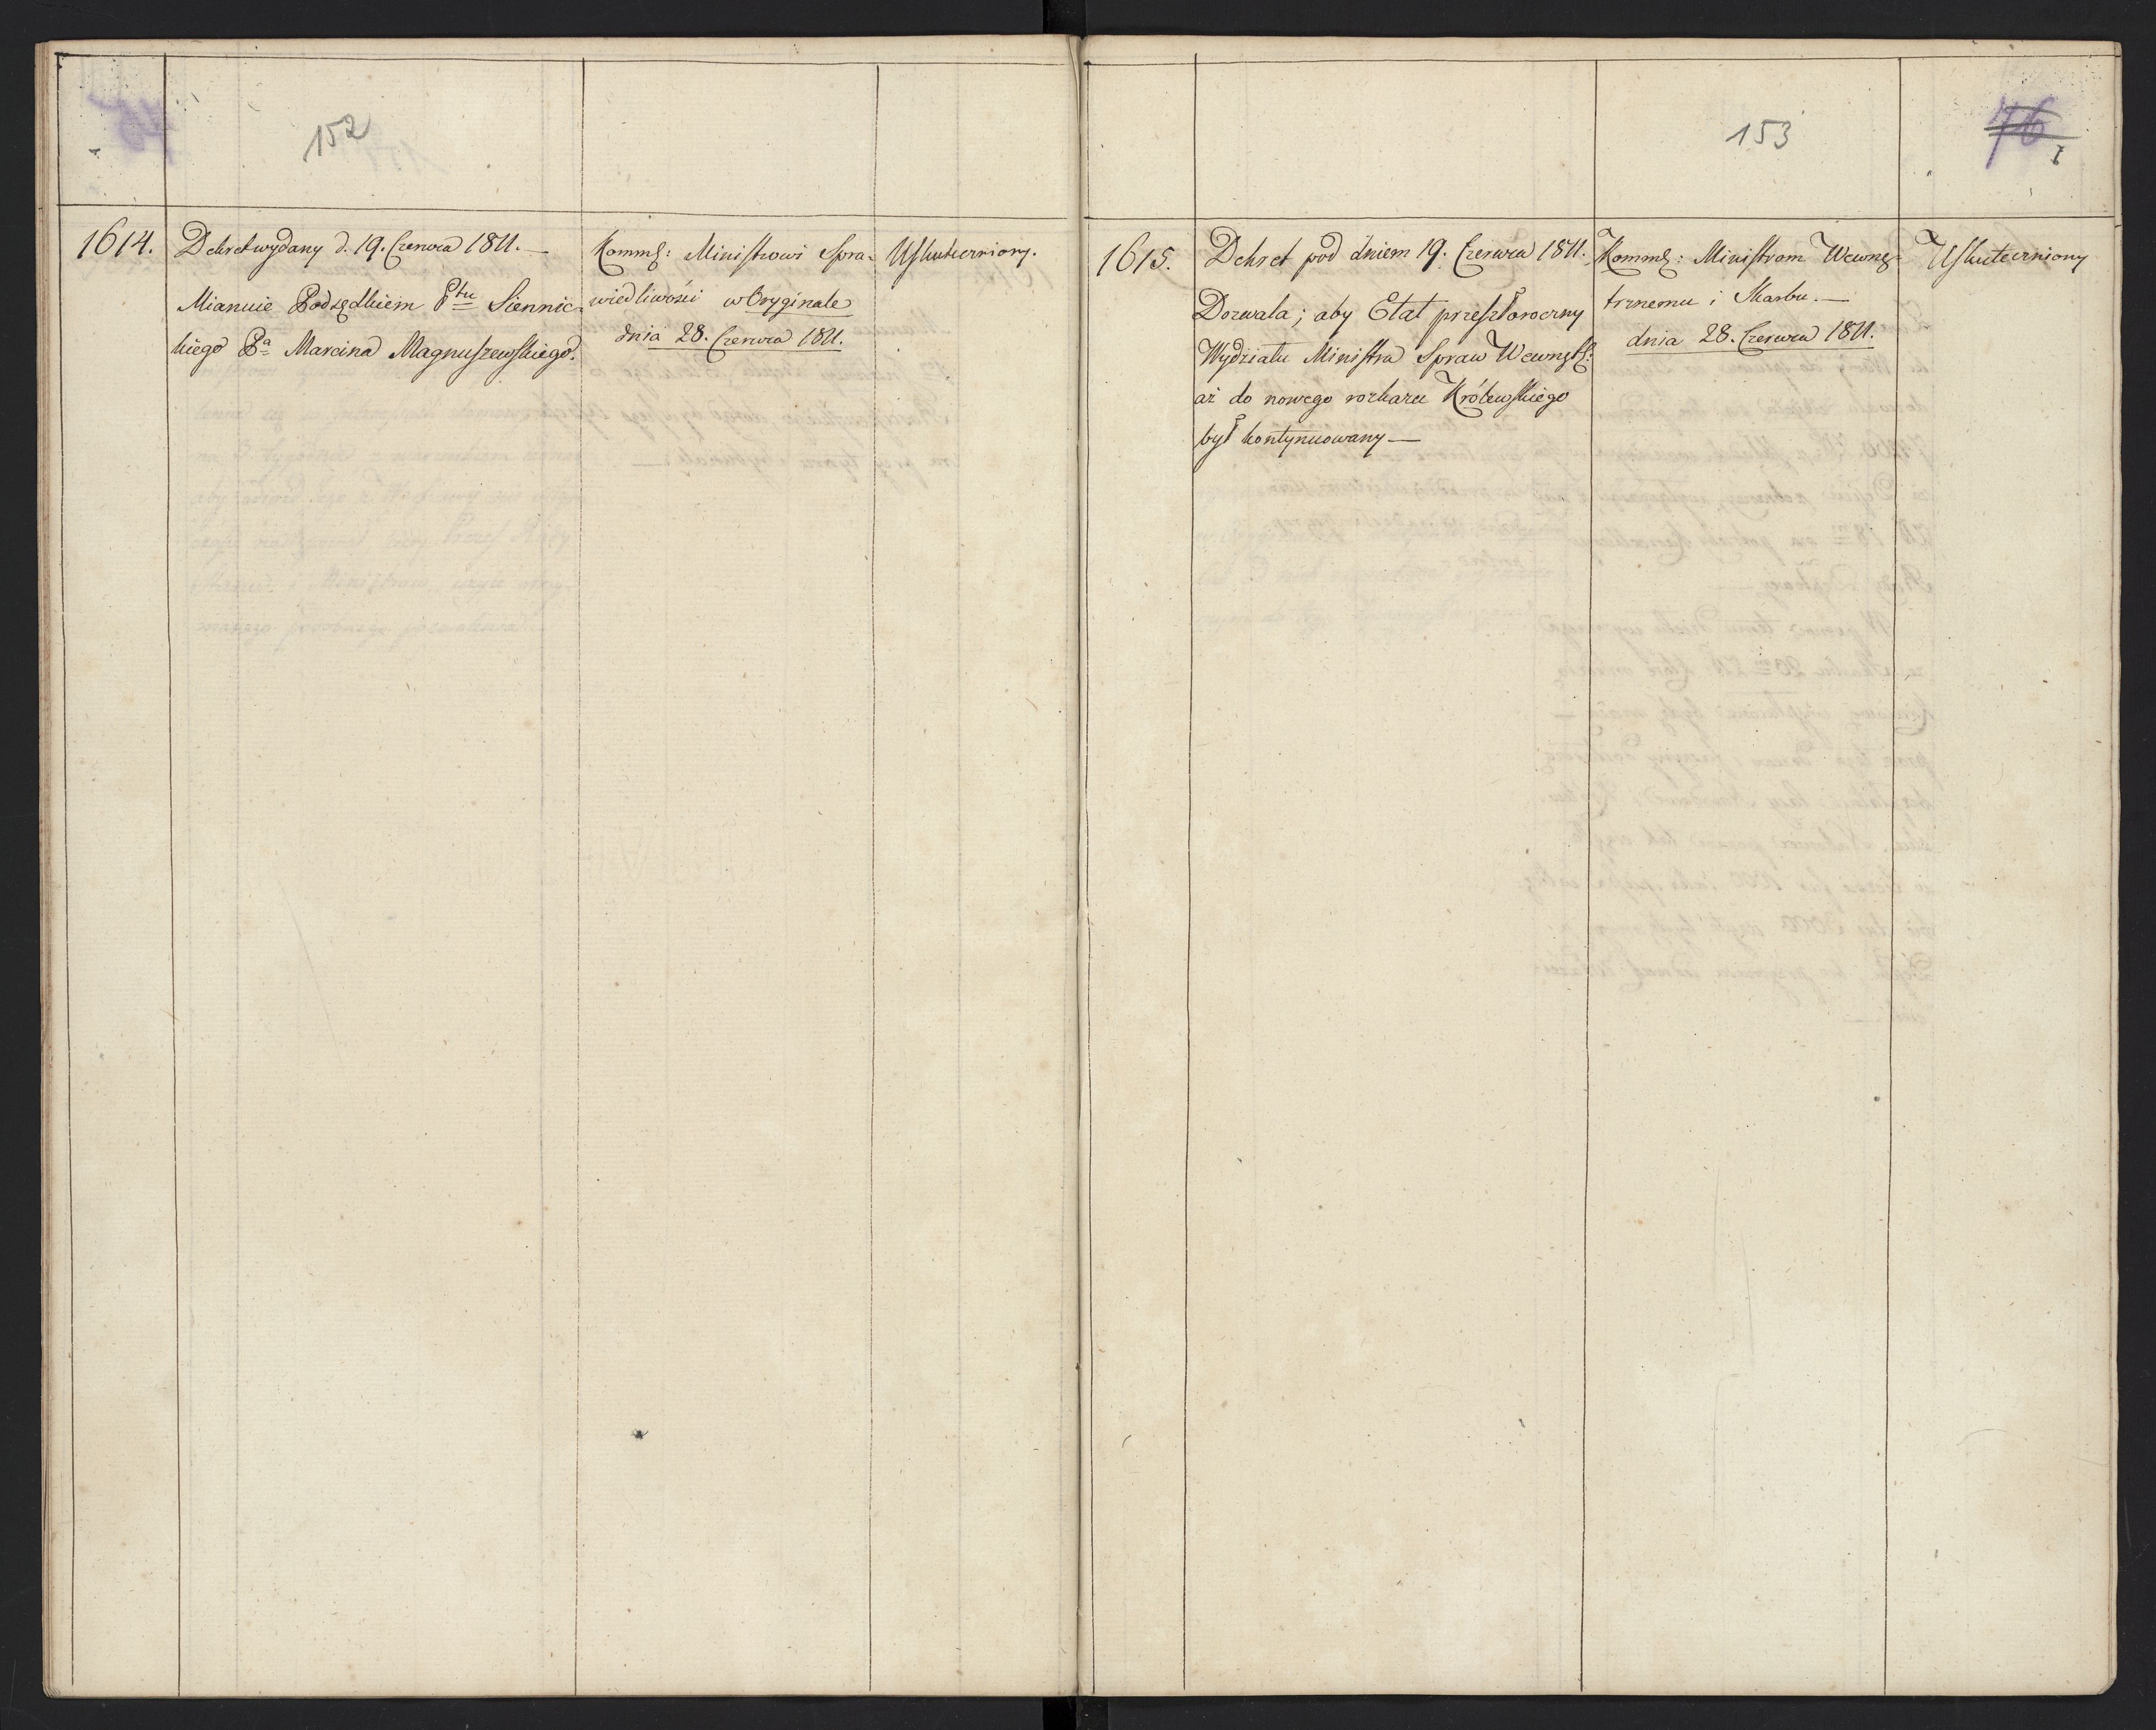 152
1614.
Dekret wydany d. 19. Czerwca 1811. —
Mianuie Podsędkiem Ptu Siennic-
kiego Pa Marcina Magnuszewskiego.
Komm: Ministrowi Spra-
wiedliwości w Oryginale
dnia 28. Czerwca 1811.
Uskuteczniony.
153
76
1615.
Dekret pod dniem 19. Czerwca 1811.
Dozwala; aby Etat przeszłoroczny
Wydziału Ministra Spraw Wewnętz:
aż do nowego rozkazu Królewskiego
był kontynuowany —
Komm: Ministrom Wewnę-
trznemu i Skarbu. —
dnia 28. Czerwca 1811.
Uskuteczniony